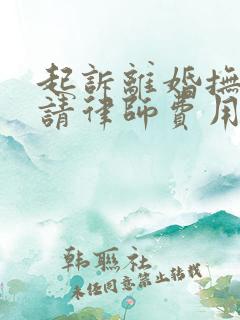 起訴離婚撫
請律師費用
韩聯社
未任同意禁止转载